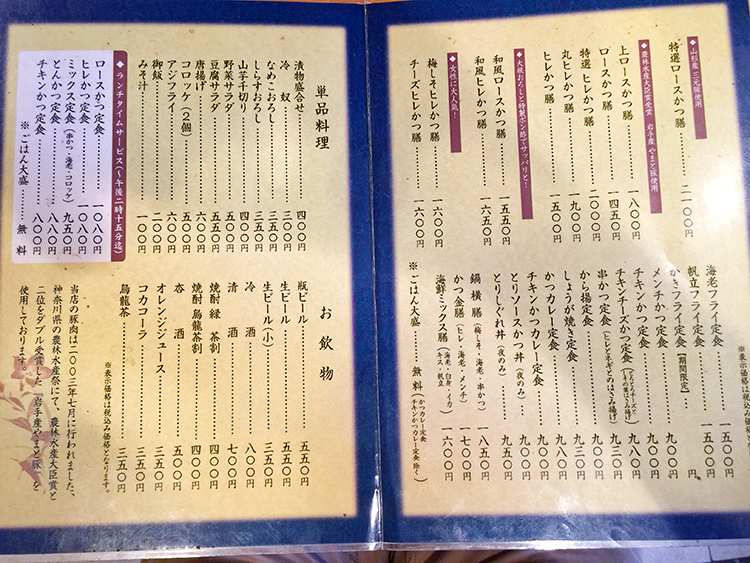 ◆山形産 三元豚使用
特選ロースかつ膳 …… 二一〇〇円
◆農林水産大臣賞受賞 岩手産 やまと豚使用
上ロースかつ膳 …… 一八〇〇円
ロースかつ膳 …… 一四五〇円
特選 ヒレかつ膳 …… 二一〇〇円
丸ヒレかつ膳 …… 一九〇〇円
ヒレかつ膳 …… 一五五〇円
◆大根おろしと特製ポン酢でサッパリと!
和風ロースかつ膳 …… 一五五〇円
和風ヒレかつ膳 …… 一六五〇円
◆女性に大人気!
梅しそヒレかつ膳 …… 一六〇〇円
チーズヒレかつ膳 …… 一六〇〇円
海老フライ定食 …… 一五〇〇円
帆立フライ定食 …… 一五〇〇円
かきフライ定食【期間限定】 円
メンチかつ定食 …… 九〇〇円
チキンかつ定食 …… 九〇〇円
チキンチーズかつ定食
串かつ定食(ヒレとネギとのはさみ揚げ)
から揚げ定食 …… 九三〇円
しょうが焼き定食
かつカレー定食
チキンかつカレー定食
とりソースかつ丼(夜のみ)
とりしぐれ丼(夜のみ) …… 九五〇円
鍋横膳(梅しそ・海老・串かつ) …… 一八五〇円
かつ金膳(ヒレ・海老・メンチ) …… 一七〇〇円
海鮮ミックス膳(海老・白身・イカ キス・帆立) …… 一六〇〇円
※ごはん大盛 …… 無料(かつカレー定食 チキンかつカレー定食 除く)
単品料理
漬物盛合せ …… 四〇〇円
冷奴 …… 三〇〇円
なめこおろし …… 三五〇円
しらすおろし …… 三五〇円
山芋千切り …… 四〇〇円
野菜サラダ …… 五〇〇円
豆腐サラダ …… 五五〇円
唐揚げ …… 六〇〇円
コロッケ(2個) …… 五〇〇円
アジフライ …… 六〇〇円
御飯 …… 二〇〇円
みそ汁 …… 一〇〇円
◆ランチタイムサービス(〜午後二時十五分迄)
ロースかつ定食 …… 一〇八〇円
ヒレかつ定食 …… 一〇八〇円
ミックス定食(串かつ・海老・コロッケ) …… 九五〇円
とんかつ定食 …… 八〇〇円
チキンかつ定食 …… 八〇〇円
※ごはん大盛 …… 無料
お飲物
瓶ビール …… 五五〇円
生ビール …… 五五〇円
生ビール(小) …… 三五〇円
冷酒 …… 八〇〇円
清酒 …… 七〇〇円
焼酎 緑茶割 …… 四〇〇円
焼酎 烏龍茶割 …… 四〇〇円
杏酒 …… 五〇〇円
オレンジジュース …… 三五〇円
コカコーラ …… 三五〇円
烏龍茶 …… 三五〇円
※表示価格は税込み価格となります。
当店の豚肉は二〇〇三年七月に行われました、
神奈川県の農林水産祭にて、農林水産大臣賞と
二位をダブル受賞した「岩手産やまと豚」を
使用しております。
※表示価格は税